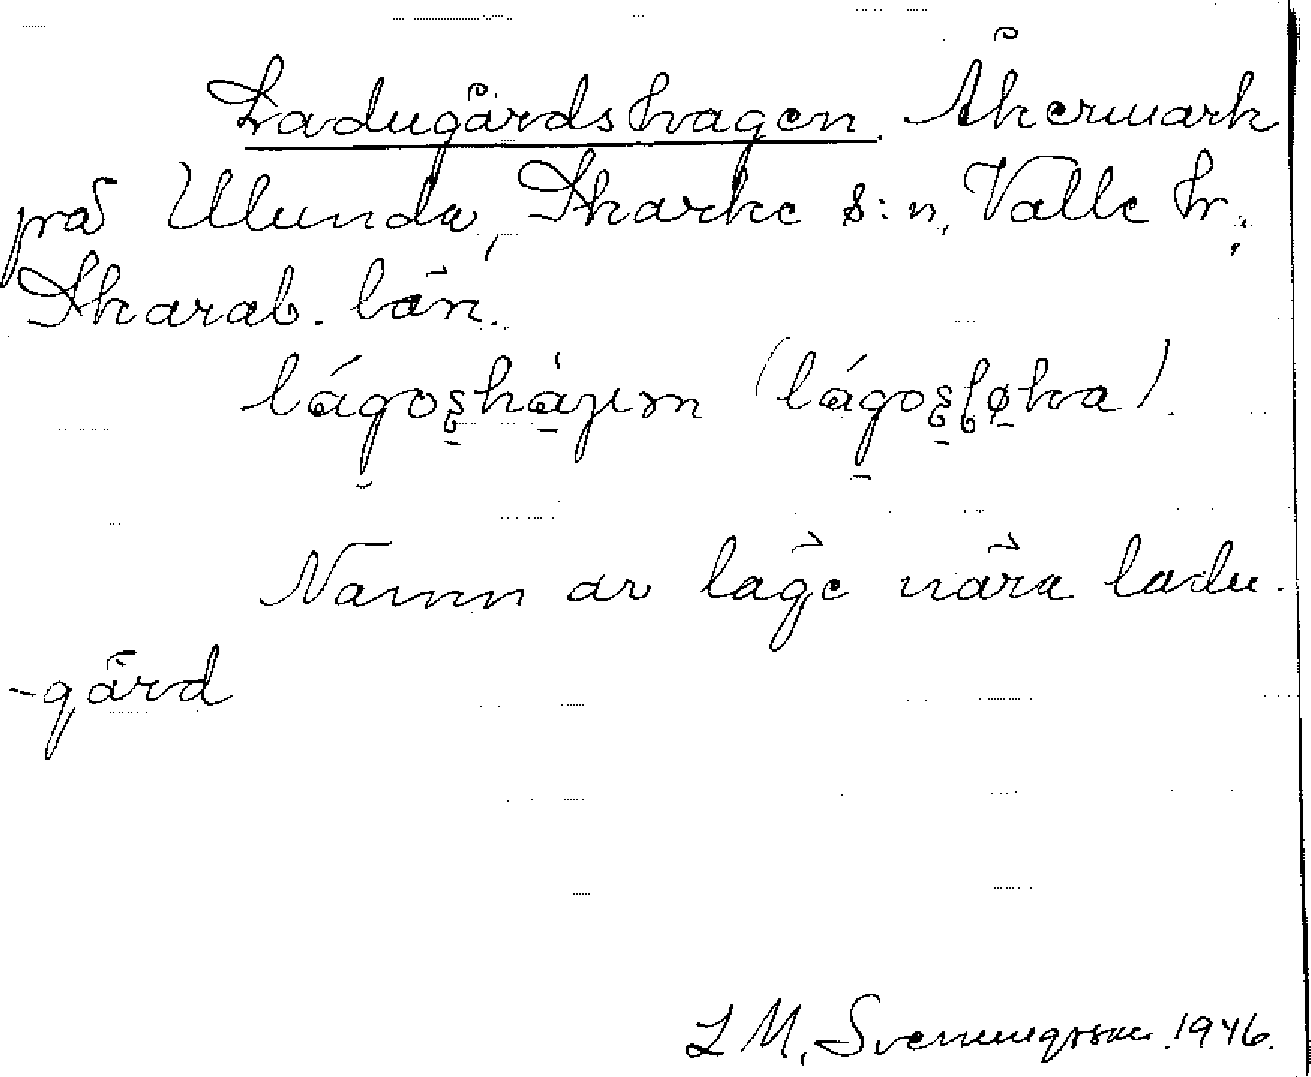 Ladugårdshagen. Åkermark
på Ulunda, Skarke s:n, Valle hr,
Skarab. län.
Namn av läge nära ladu-
-gård
L M, Svenungsson. 1946.